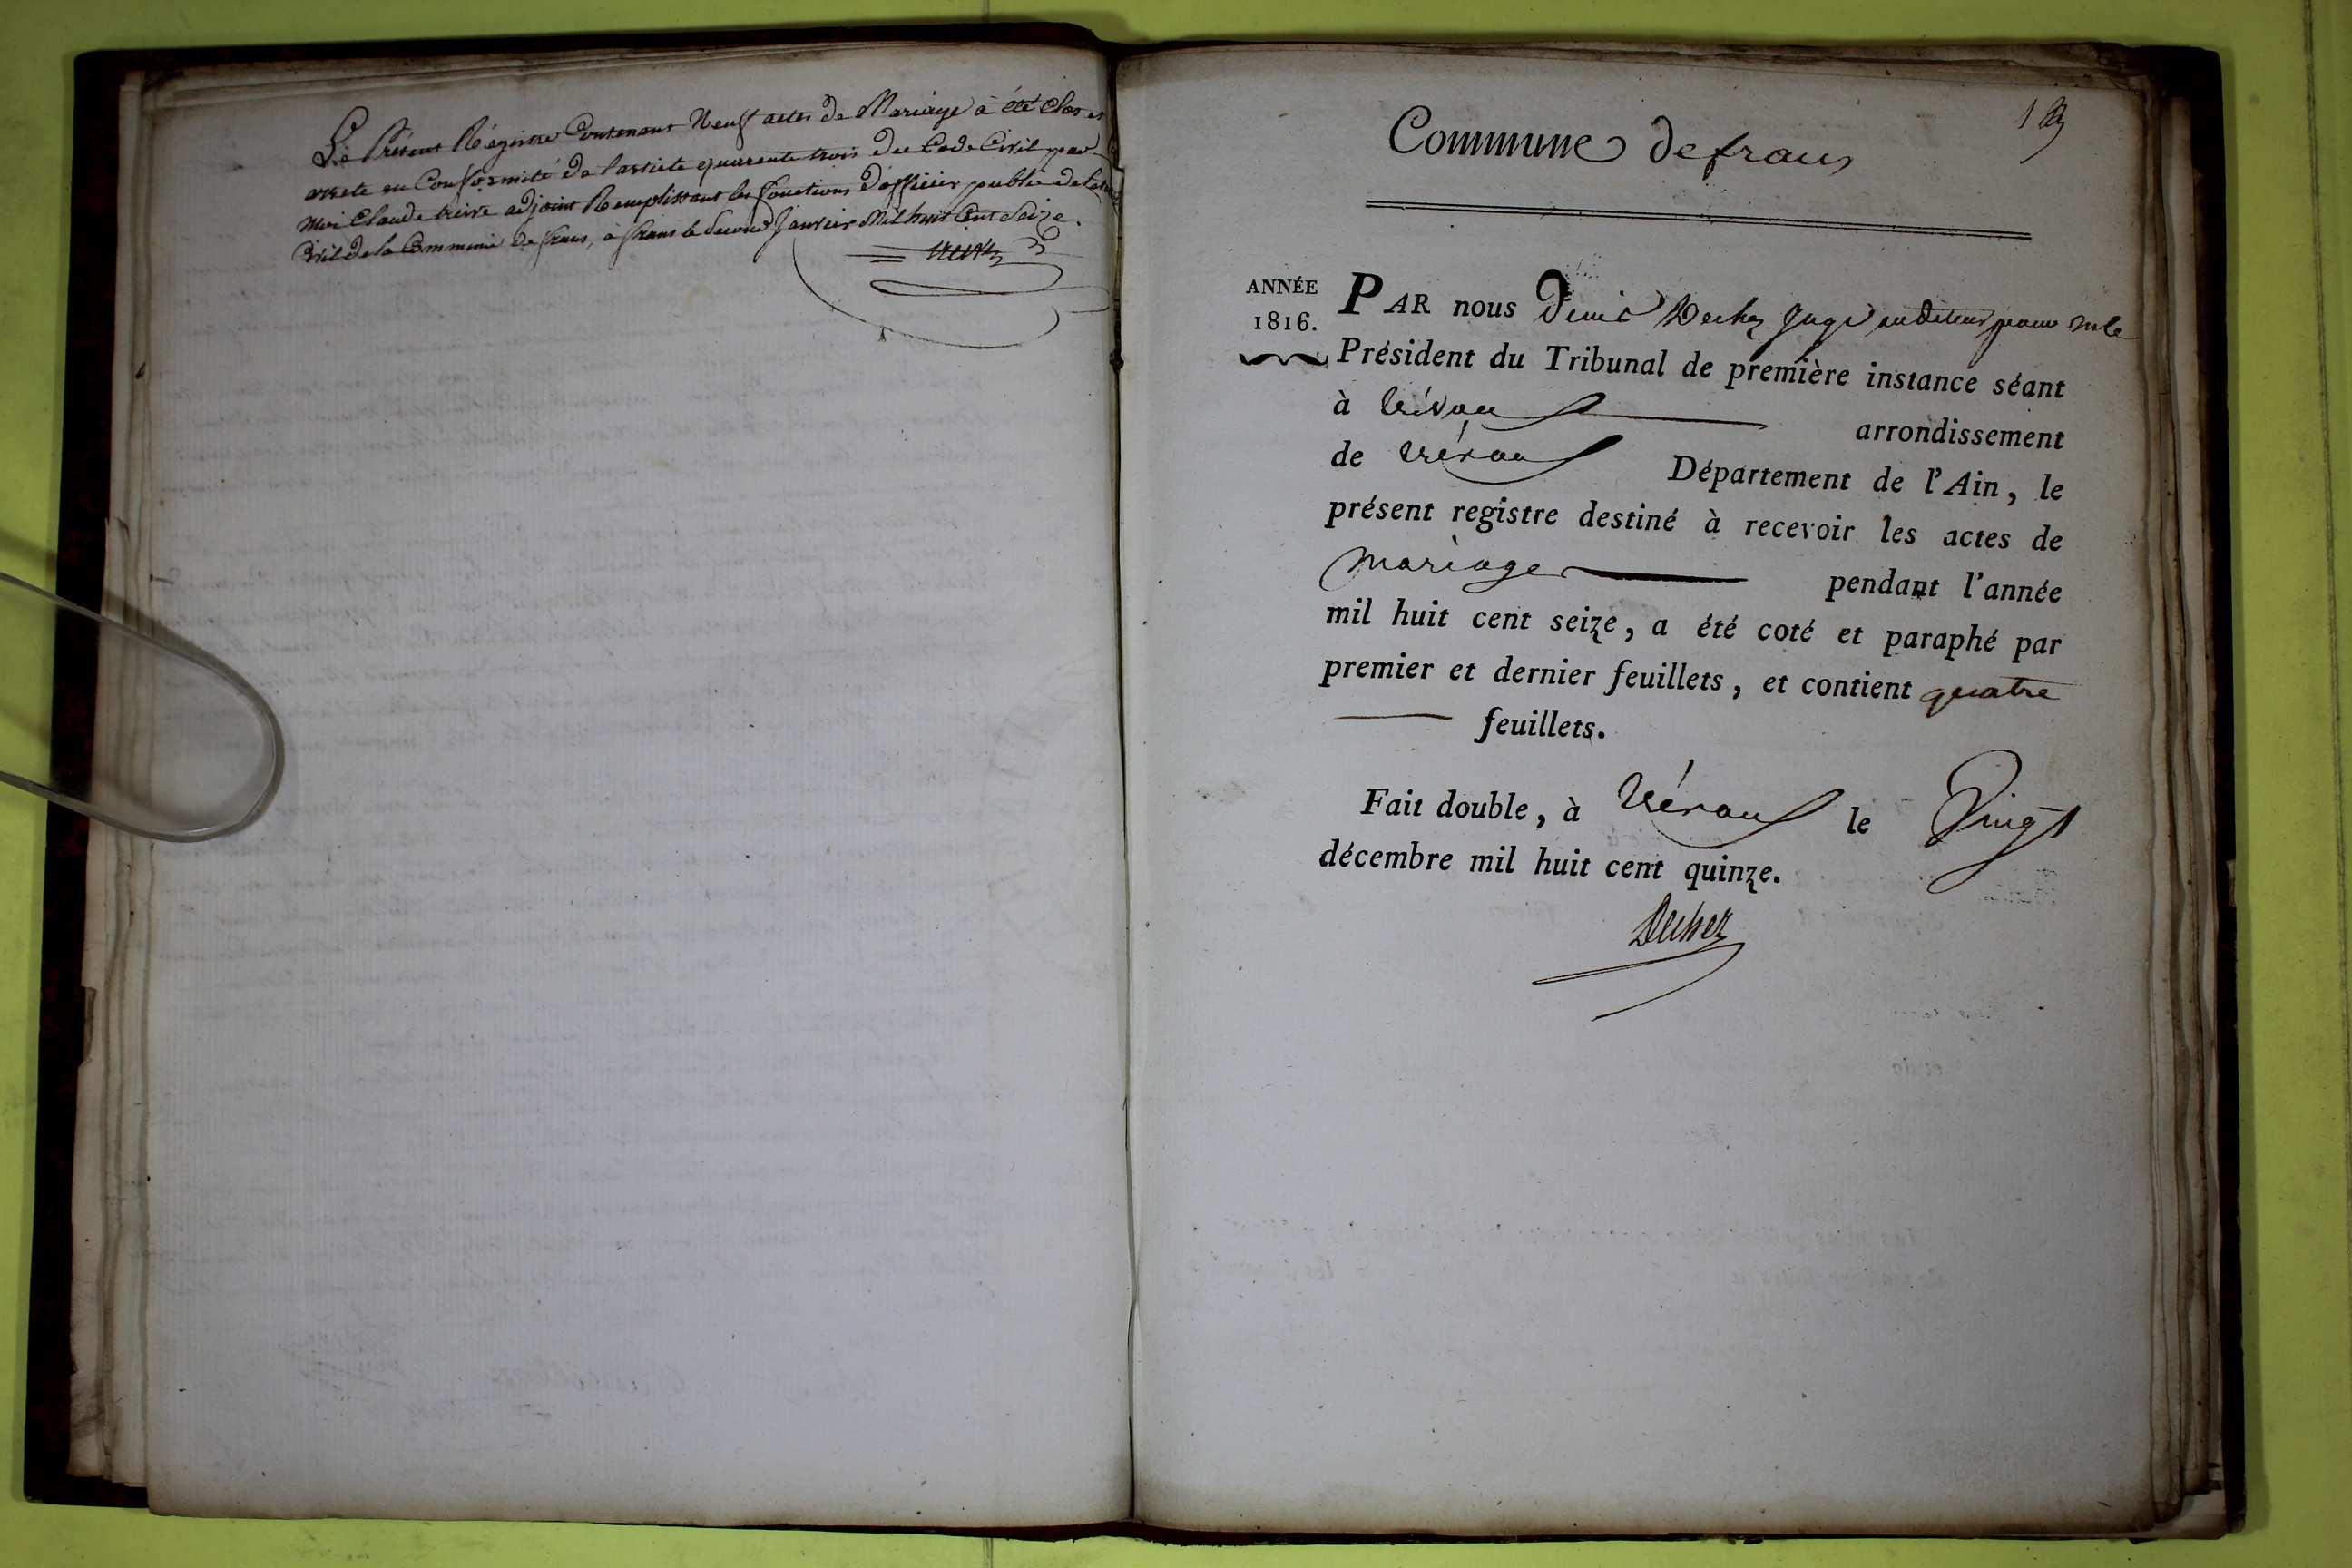 Le Présent Régistre Contenant Neuf actes de Mariage à été Clos et
arrete en Conformité de l'article quarente trois du Code Civil par
Moi Claude treive adjoint Remplissant les fonctions d'officier public de l'état
Civil de la Commune de frans, à frans le Second Janvier Mil huit Cent Seize.
treive
1
Commune de frans
ANNÉE
1816.
PAR nous Denis Duchez Juge auditeur pour Mr le
Président du Tribunal de première instance séant
à trévoux arrondissement
de trévoux Département de l'Ain, le
présent registre destiné à recevoir les actes de
mariage pendant l'année
mil huit cent seize, a été coté et paraphé par
premier et dernier feuillets, et contient quatre
feuillets.
Fait double, à trévoux le Vingt
décembre mil huit cent quinze.
Duchez